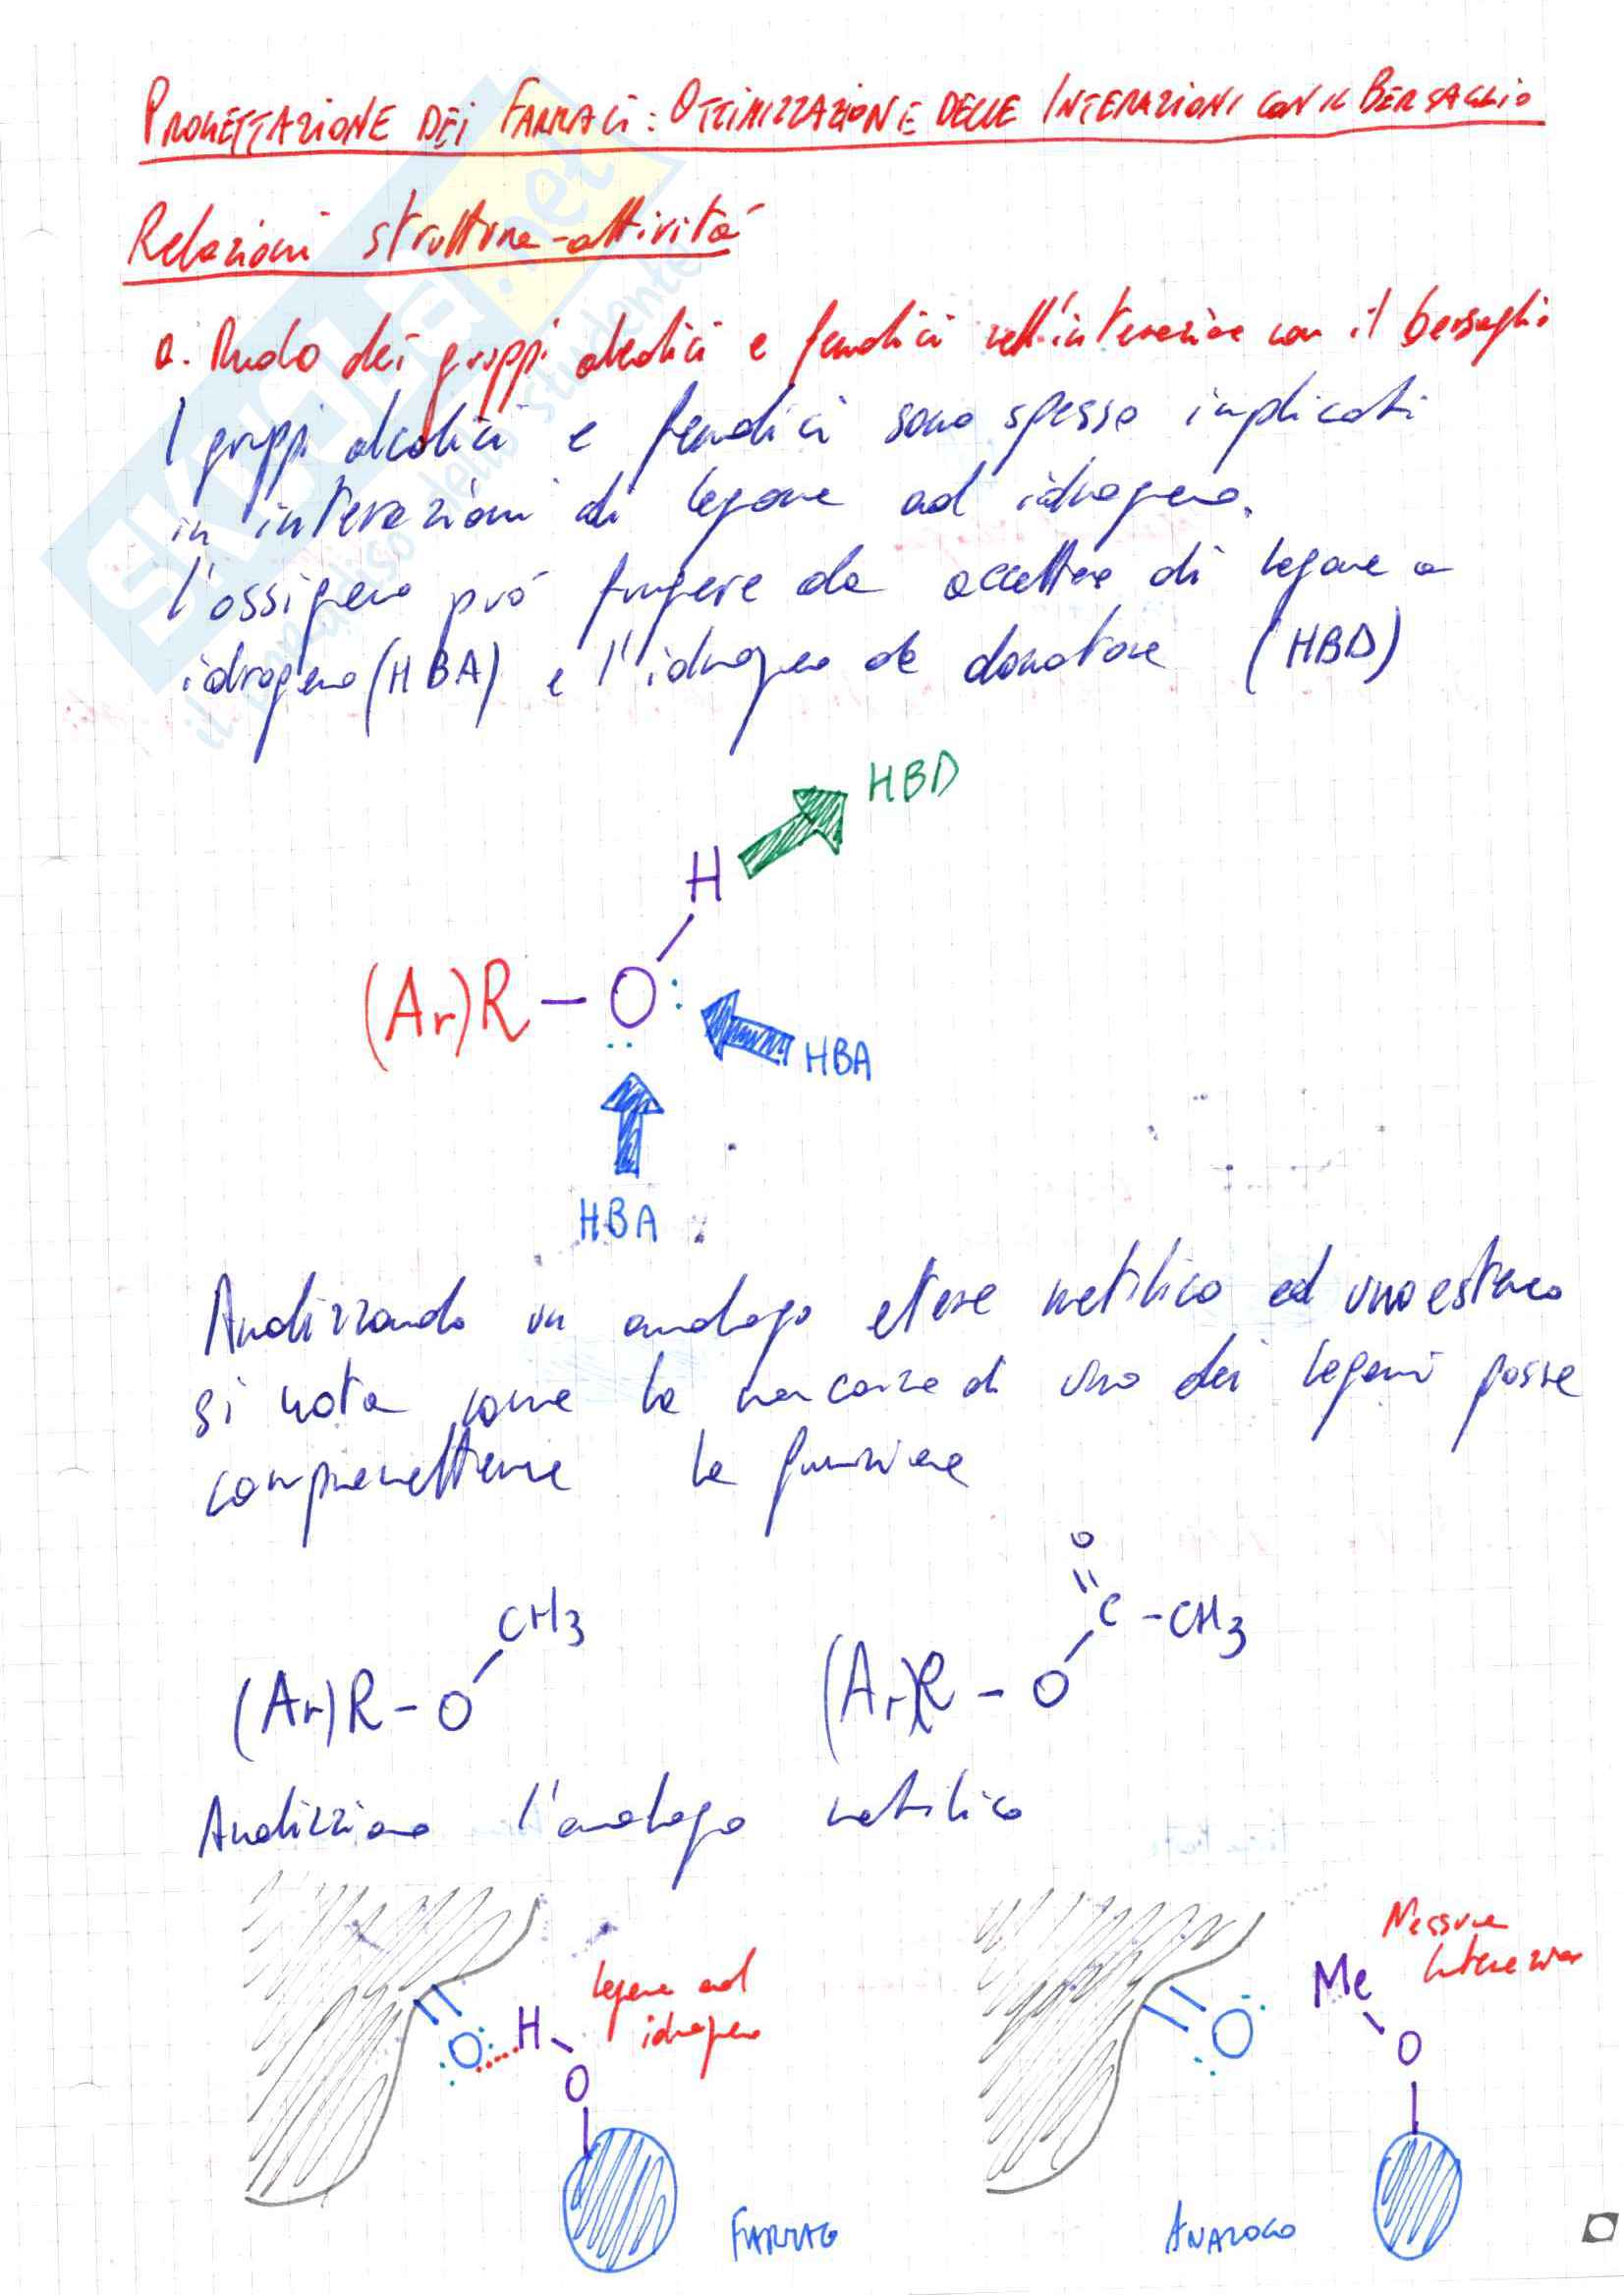 PROGETTAZIONE DEI FARMACI: OTTIMIZZAZIONE DELLE INTERAZIONI CON IL BERSAGLIO
Relazioni struttura-attività
a. Ruolo dei gruppi alcolici e fenolici nell'interazione con il bersaglio
I gruppi alcolici e fenolici sono spesso implicati
in interazioni di legame ad idrogeno.
l'ossigeno può fungere da accettore di legame a
idrogeno (HBA) e l'idrogeno da donatore (HBD)
HBD
H
(Ar)R - O :
..
HBA
HBA
Analizzando un analogo etere metilico ed uno estereo
si nota come la mancanza di uno dei legami possa
comprometterne la funzione
O
CH3
C - CH3
(Ar)R - O
(Ar)R - O
Analizziamo l'analogo metilico
Nessuna
interazione
legame ad
idrogeno
Me
H
O
O
O
O
FARMACO
ANALOGO
SKUOLA.net
il paradiso dello studente